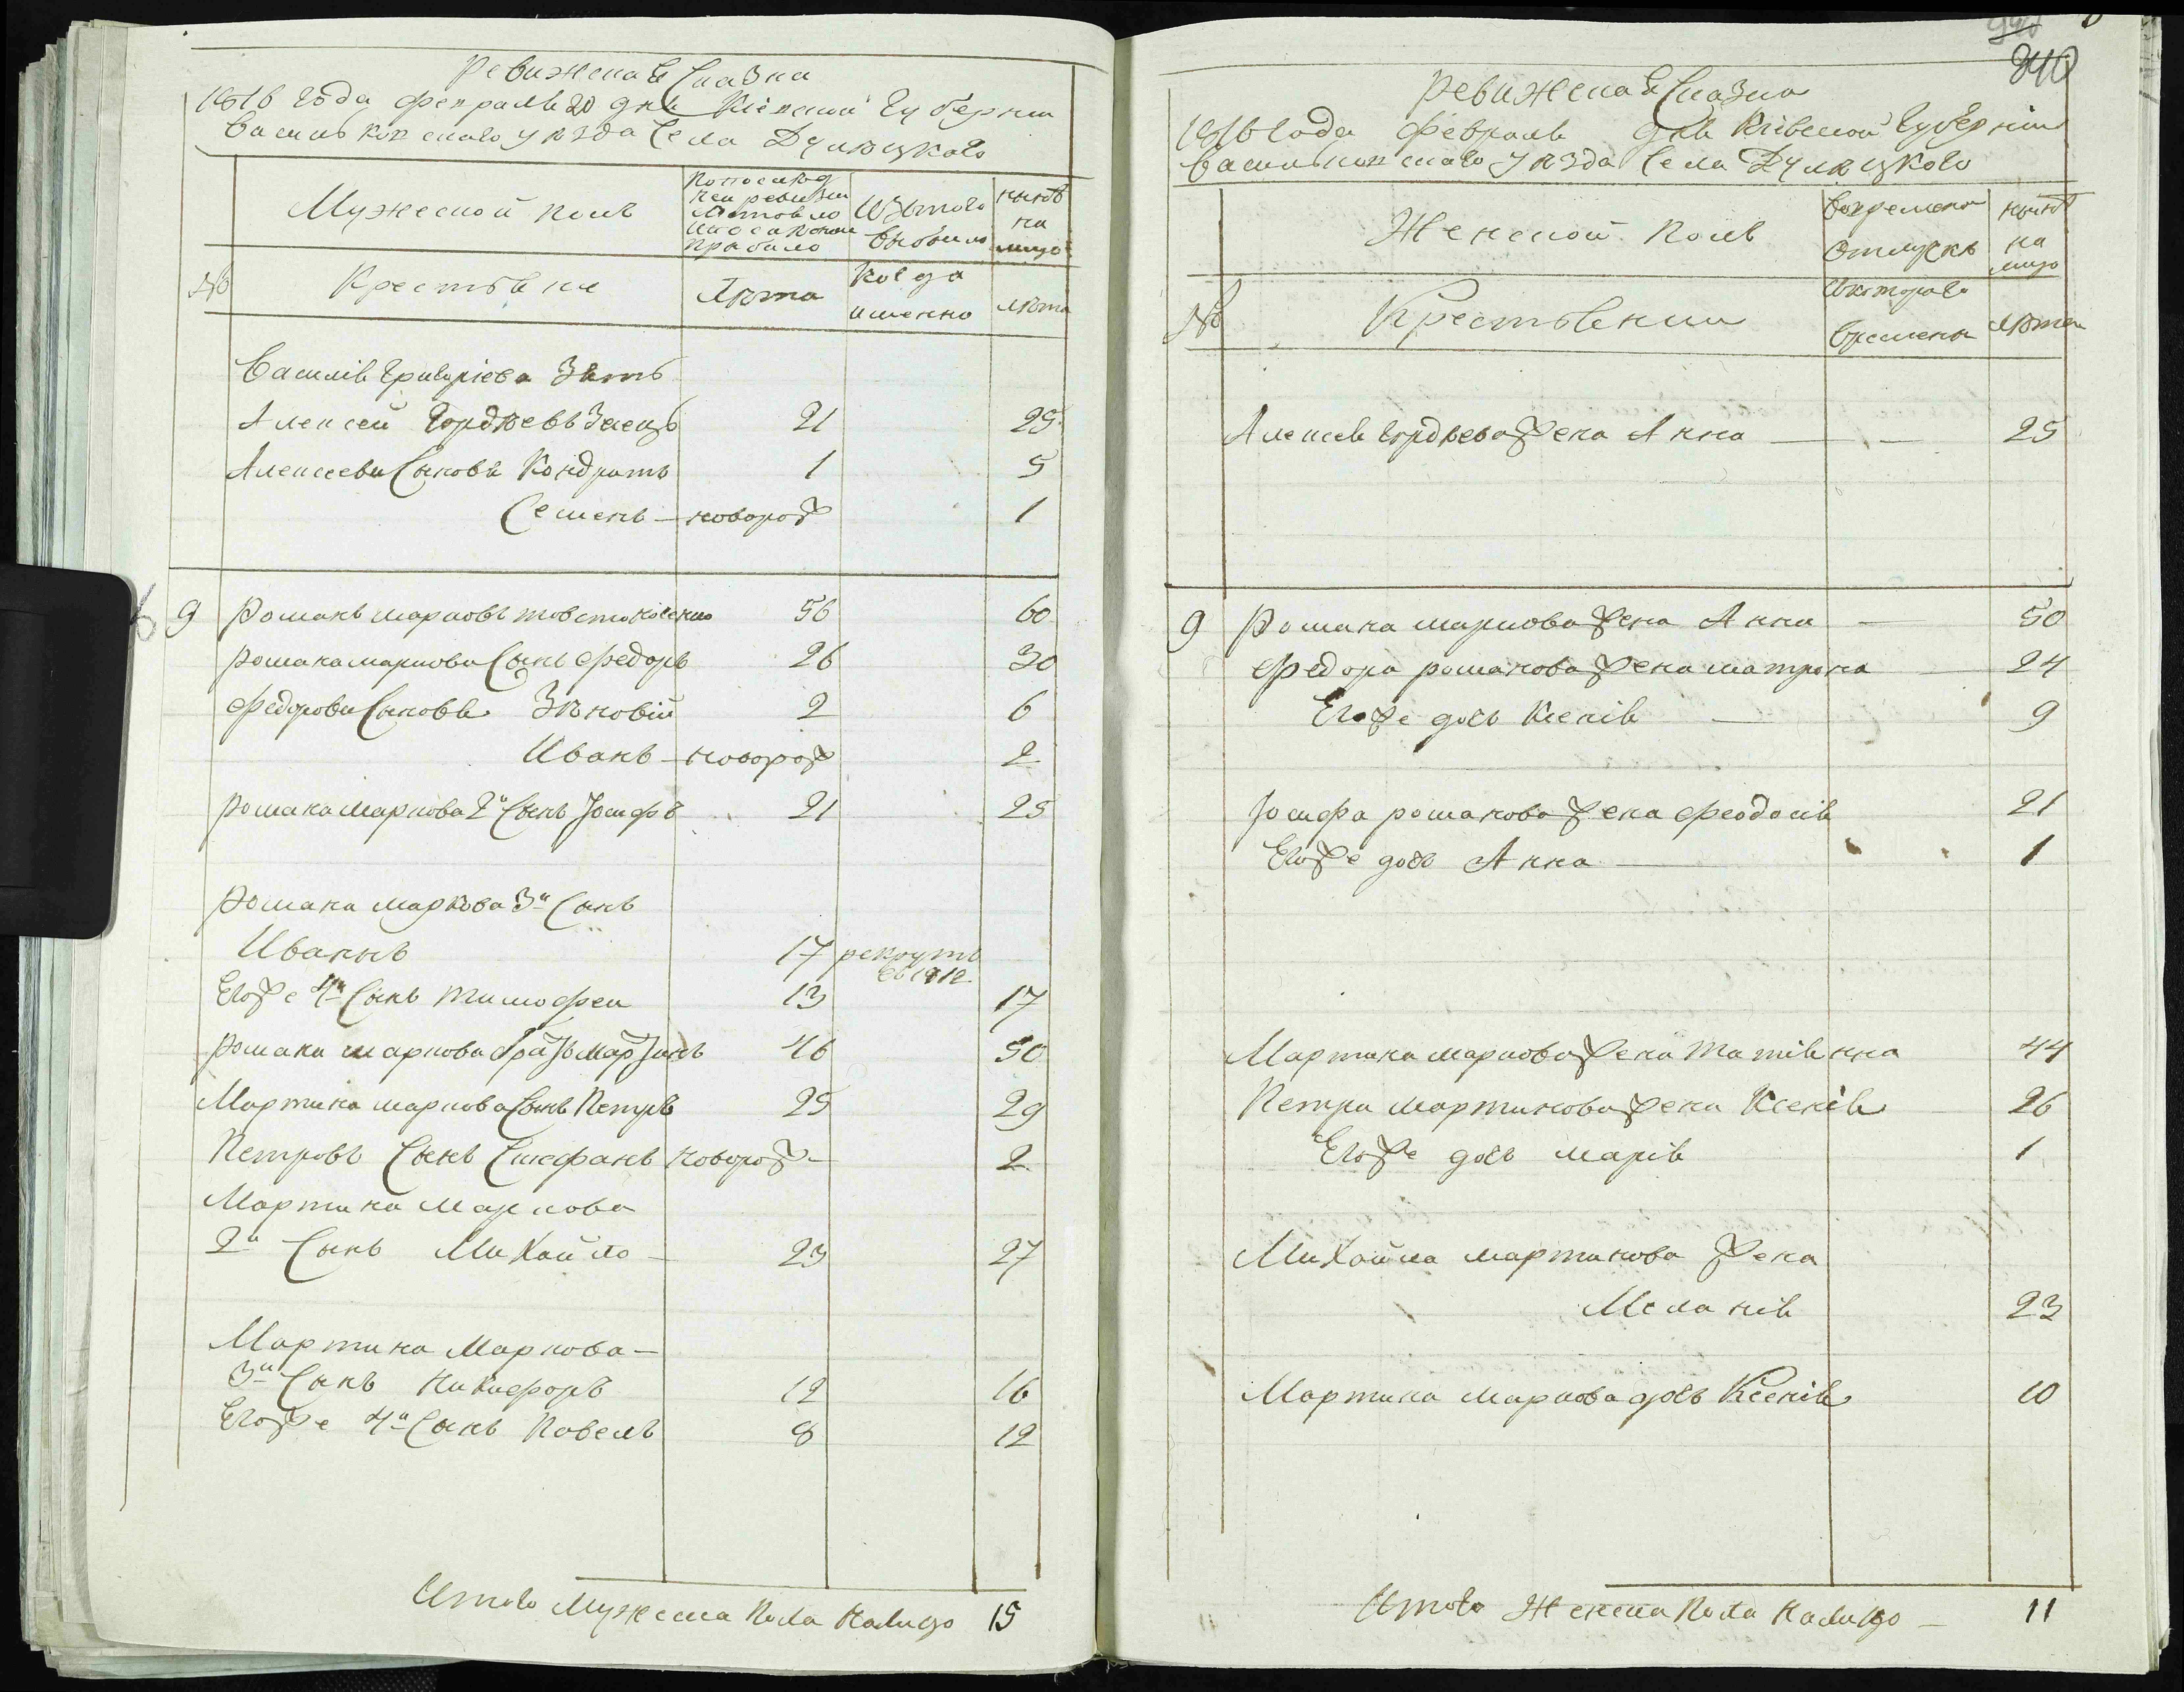 Ревижская Сказка
1816 года февраля 20 дня Киевской Губернии
Васильковскаго уѣзда Села Дулѣцкого
Мужеской полъ
По последней ревизии состояло и после оной прибыло
Изъ того выбыло
нынѣ на лицо
№
Крестьяне
Лѣта
Когда именно
лѣта
Василія Григоріева Зять
Алексей Гордѣевъ Заецъ 21 25
Алексеевы Сыновья Кондратъ 1 5
Семенъ — новорож 1
9 Романъ Марковъ Товстоноженко 56 60
Романа Маркова Сынъ Федоръ 26 30
Федоровы Сыновья Зѣновій 2 6
Иванъ — новорож 2
Романа Маркова 2й Сынъ Іосифъ 21 25
Романа Маркова 3й Сынъ
Иванъ 17 рекрутъ
въ 1812
Егоже 4й Сынъ Тимофей 13 17
Романа Маркова братъ Мартинъ 46 50
Мартина Маркова Сынъ Петръ 25 29
Петровъ Сынъ Стефанъ новорож — 2
Мартина Маркова
2й Сынъ Михайло — 23 27
Мартина Маркова —
3й Сынъ Никифоръ 12 16
Егоже 4й Сынъ Павелъ 8 12
Итого Мужеска Пола Налицо 15
240
Ревижская Сказка
1816 года февраля дня Кіевской Губерніи
Васильковскаго уѣзда Села Дулѣцкого
Женской полъ
Во временной отлучкѣ
нынѣ на лицо
№
Крестьянки
Скотораго времени
лѣта
Алексея Гордѣева жена Анна — — 25
9 Романа Маркова жена Анна — 50
Федора Романова жена Матрона — 24
Егоже дочь Ксенія — 9
Іосифа Романова жена Феодосія 21
Егоже дочь Анна — 1
Мартина Маркова жена Татіянна 44
Петра Мартинова жена Ксенія 26
Егоже дочь Марія 1
Михайла Мартинова жена
Меланія 23
Мартина Маркова дочь Ксенія 10
Итого Женска Пола Налицо — 11